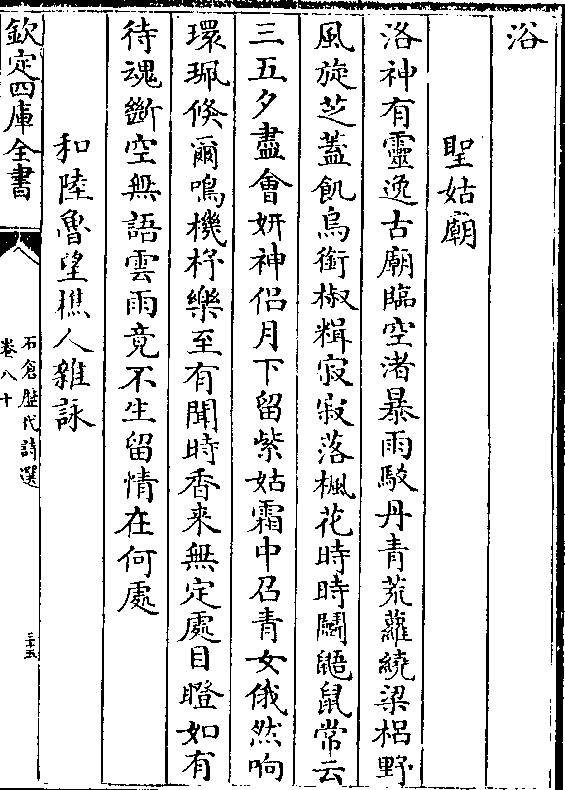 浴
聖姑廟
洛神有靈逸古廟臨空渚暴雨駁丹青荒蘿繞梁梠野
風旋芝蓋飢烏銜椒糈寂寂落楓花時時鬭鼯鼠常云
三五夕盡會妍神侣月下留紫姑霜中召青女俄然响
環珮倐爾鳴機杼樂至有聞時香来無定處目瞪如有
待魂斷空無語雲雨竟不生留情在何處
和陸魯望樵人雜詠
欽定四庫全書
石倉歴代詩選
卷八十
三十五